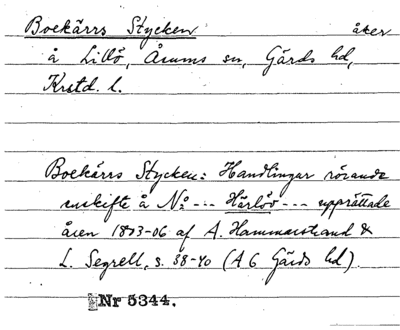 Boekärrs Stycken åker
å Lillö, Åsums sn, Gärds hd,
Krstd. l.
Boekärrs Stycken: Handlingar rörande
enskifte å No --- Härlöv --- upprättade
åren 1803-06 af A. Hammarstrand &
L. Segrell, s. 38-40 (A 6 Gärds hd).
Nr 5344.